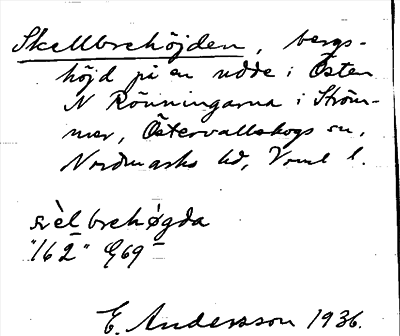 Skellbrehöjden, bergs-
höjd på en udde i Östen
N Rönningarna i Ström-
mer, Östervallskogs sn,
Nordmarks hd, Vrml l.
brehøgda
"162" 969
E. Andersson 1936.